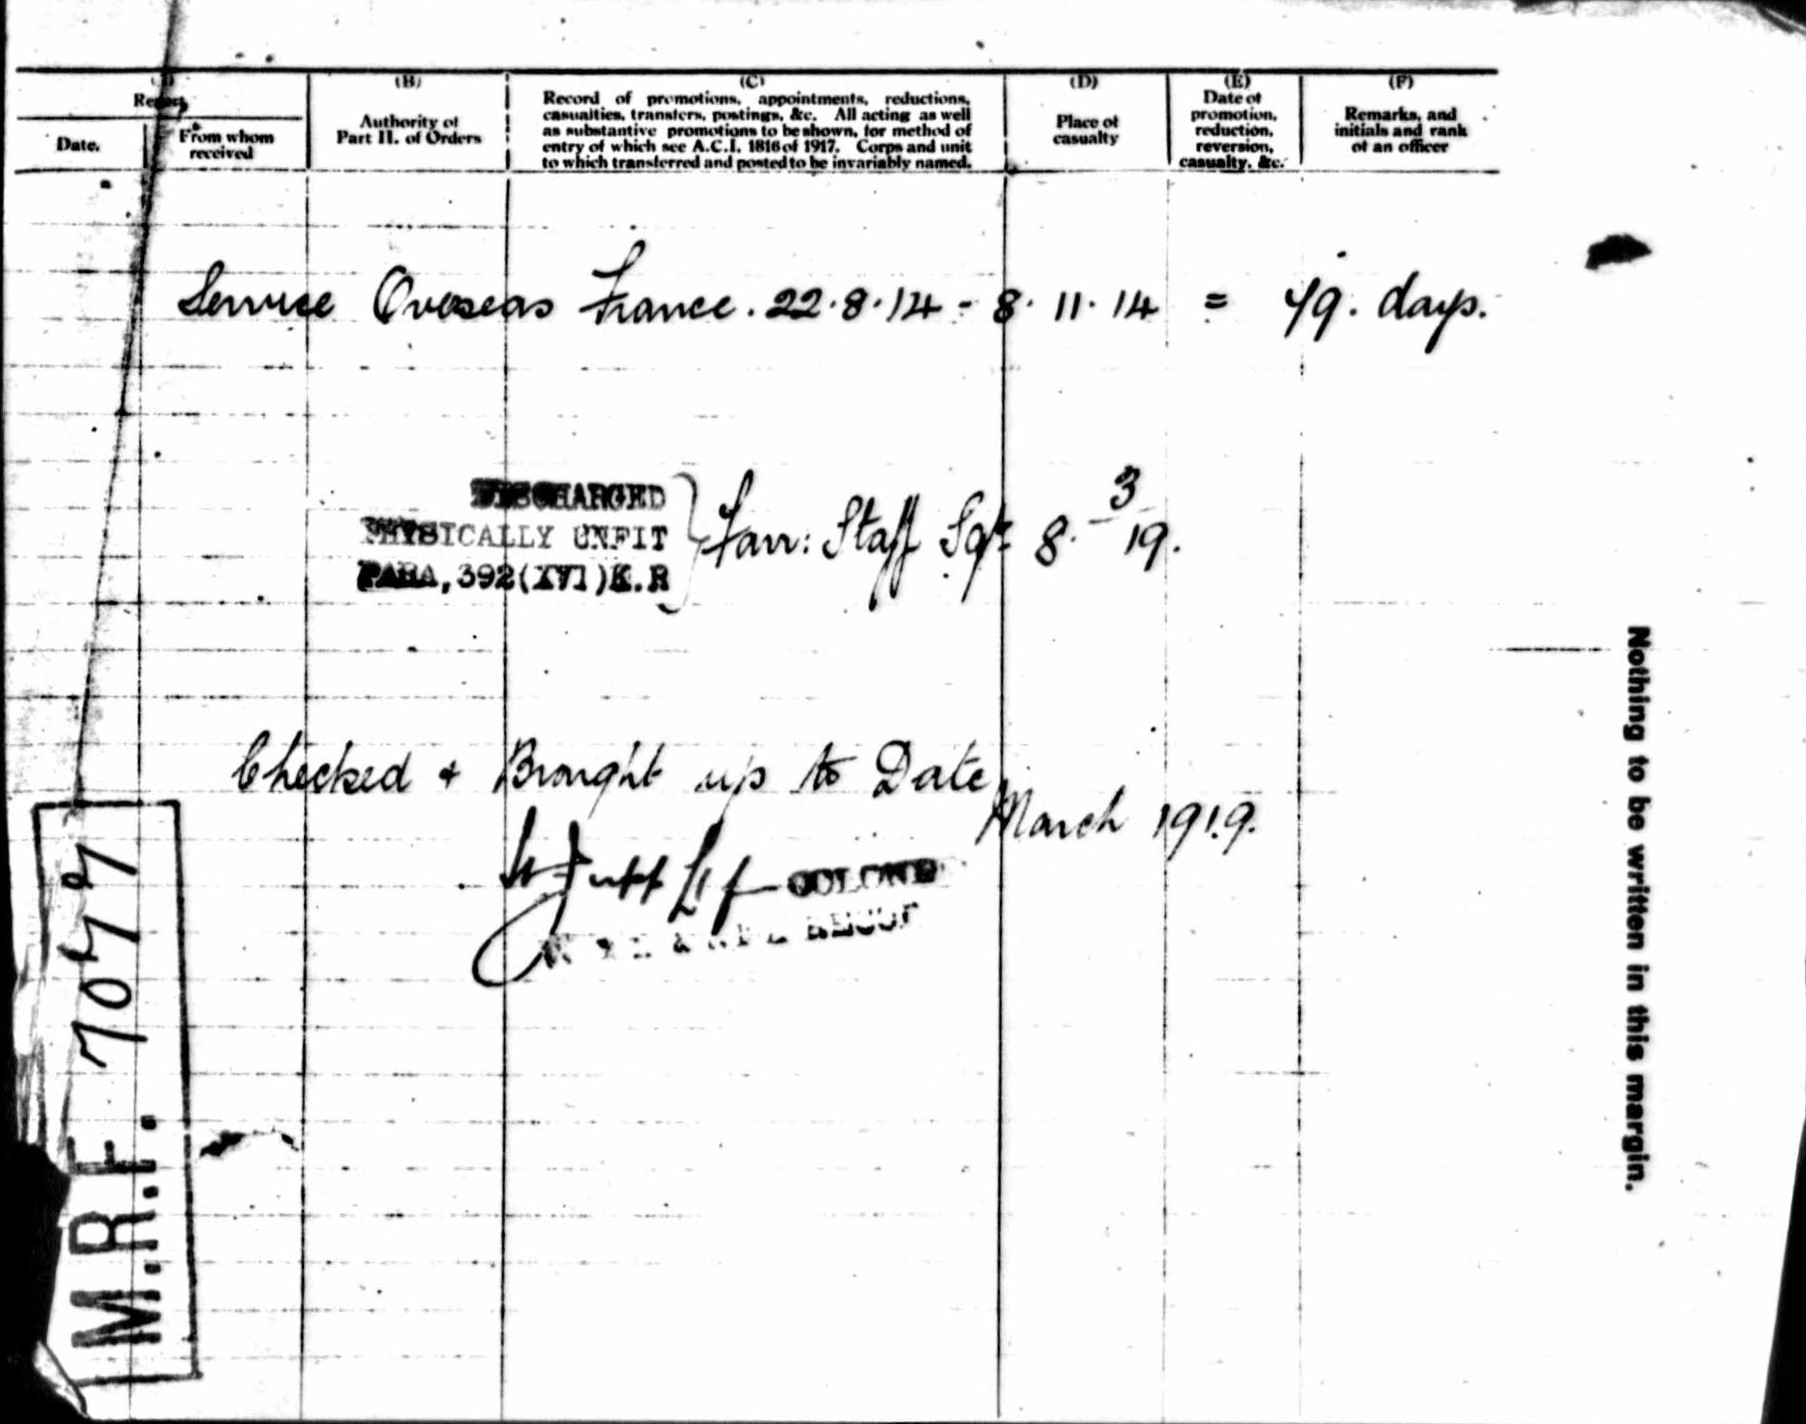 (B) (C) (D) (E) (F)
Report
Date.
From whom
received
Authority of
Part II. of Orders
Record of promotions, appointments, reductions,
casualties, transfers, postings, &c. All acting as well
as substantive promotions to be shown, for method of
entry of which see A.C.I. 1816 of 1917. Corps and unit
to which transferred and posted to be invariably named.
Place of
casualty
Date of
promotion,
reduction,
reversion,
casualty, &c.
Remarks, and
initials and rank
of an officer
Service Overseas France. 22.8.14 - 8.11.14 = 79. days.
DISCHARGED
PHYSICALLY UNFIT
PARA, 392(XVI)K.R
Farr: Staff Sgt 8. 3 19.
Checked + Brought up to Date
March 1919.
COLONE
M.R.F. 7077
Nothing to be written in this margin.